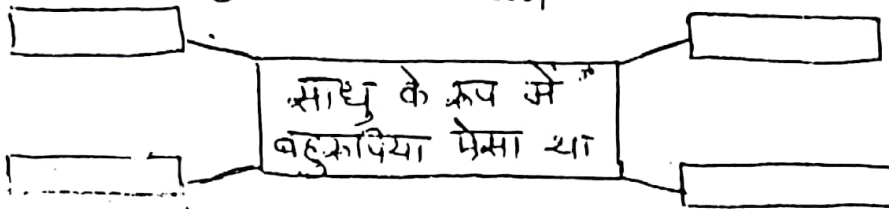 साधु के रूप में
बहुरूपिया ऐसा था